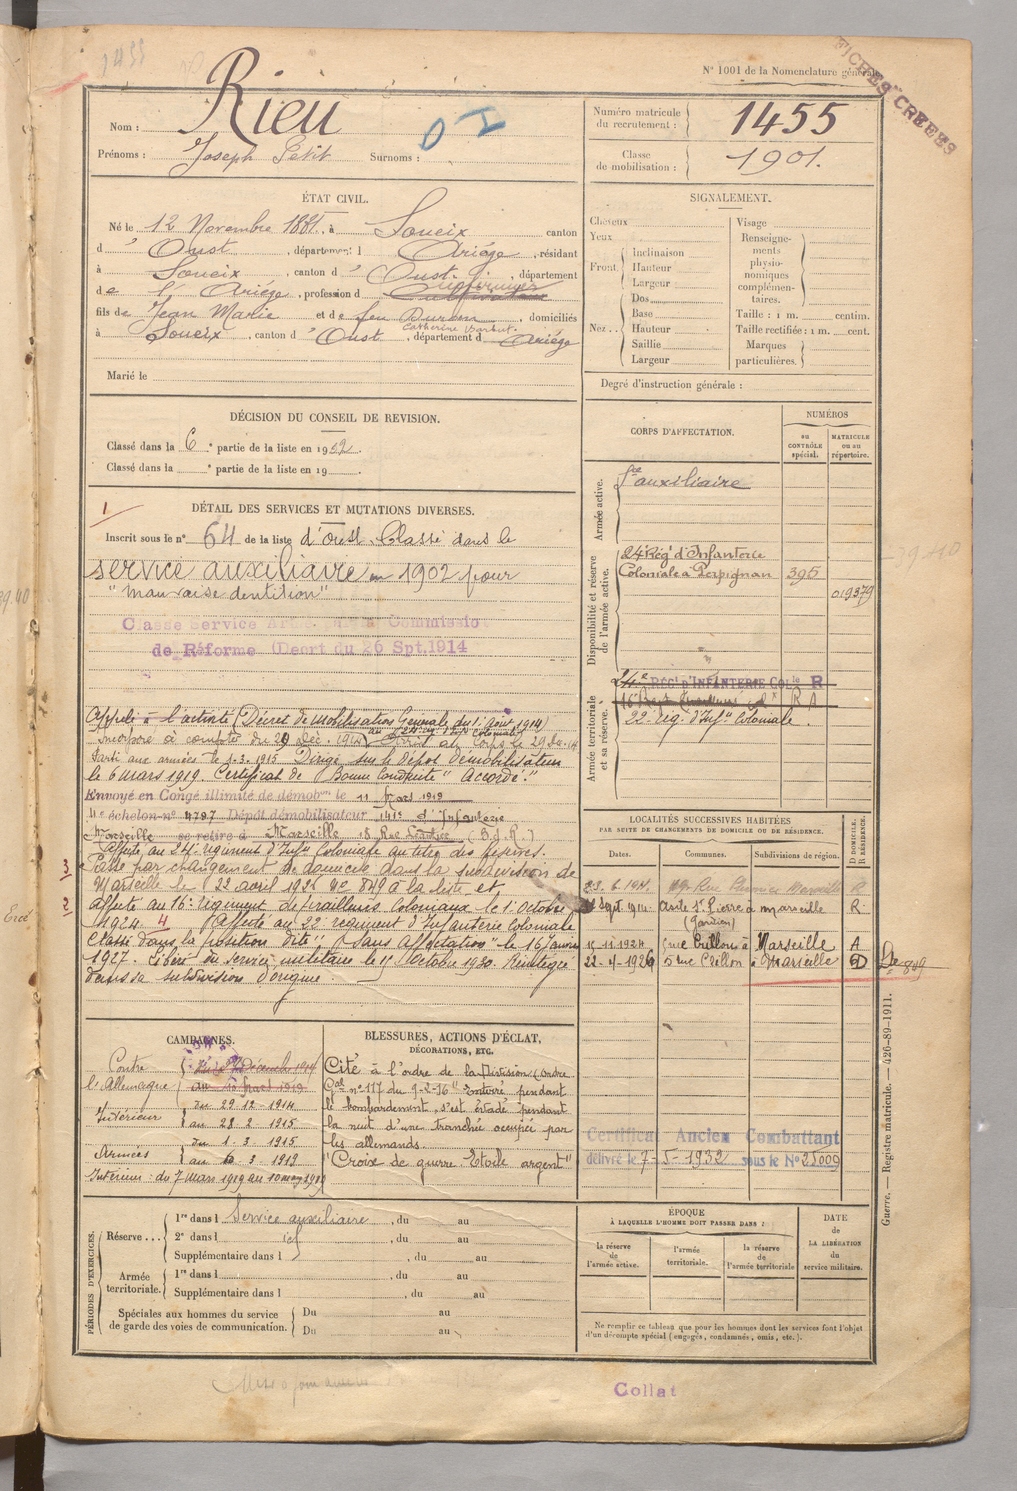 1455
FICHES CREEES
N° 1001 de la Nomenclature générale.
Nom : Rieu
Prénoms : Joseph Petit Surnoms :
Numéro matricule du recrutement : 1455
Classe de mobilisation : 1901.
ÉTAT CIVIL.
Né le 12 Novembre 1881, à Soueix canton
d' Oust, département d Ariège, résidant
à Soueix, canton d' Oust, département
de l' Ariège, profession d infirmier
fils de Jean Marie et de feu domiciliés
Catherine
à Soueix, canton d' Oust, département d Ariége
Marié le
SIGNALEMENT.
Cheveux
Yeux
Front. inclinaison
Hauteur
Largeur
Nez.. Dos
Base
Hauteur
Saillie
Largeur
Visage
Renseignements physionomiques complémentaires.
Taille : 1 m. centim.
Taille rectifiée : 1 m. cent.
Marques particulières.
Degré d'instruction générale :
DÉCISION DU CONSEIL DE REVISION.
Classé dans la 6e partie de la liste en 1902.
Classé dans la e partie de la liste en 19 .
CORPS D'AFFECTATION.
NUMÉROS
au CONTRÔLE spécial.
MATRICULE ou au répertoire.
Armée active.
Sce auxiliaire
Disponibilité et réserve de l'armée active.
24e Rég' d'Infanterie
Coloniale à Perpignan 395
019579
Armée territoriale et sa réserve.
24e REG' D'INFANTERIE COLle R
22e reg. d'Infie Coloniale.
DÉTAIL DES SERVICES ET MUTATIONS DIVERSES.
Inscrit sous le n° 64 de la liste d'Oust. Classé dans le
service auxiliaire en 1902 pour
"mauvaise dentition"
Classé Service Armé Commissio
de Réforme (Décret du 26 Spt. 1914
Appelé à l'activité (Décret de Mobilisation Générale du 1er Août 1914)
Incorporé à compter du 29 Déc. 1914 Arrivé au Corps le 29 Dec. 14
Parti aux armées le 1-3-1915 Dirigé sur le dépôt démobilisateur
le 6 mars 1919. Certificat de "Bonne Conduite" "Accordé."
Envoyé en Congé illimité de démobon le 11 Mars 1919
11e échelon n° 4797 Dépôt démobilisateur 141e d'Infanterie
Marseille se retire à Marseille 18 Rue (B.d.R.)
Affecté au 24e régiment d'Infie Coloniale au titre des réserves.
Passé par changement de domicile dans la subdivision de
Marseille le 22 avril 1926 N° 849 à la liste et
affecté au 16e régiment de tirailleurs Coloniaux le 1er Octobre
1924. 4 Affecté au 22e régiment d'Infanterie Coloniale
Classé dans la position dite "Sans Affectation" le 16 Janvier
1927. Libéré du service militaire le 15 Octobre 1930. Réintégré
dans sa subdivision d'origine.
LOCALITÉS SUCCESSIVES HABITÉES
PAR SUITE DE CHANGEMENTS DE DOMICILE OU DE RÉSIDENCE.
Dates. Communes. Subdivisions de région. D DOMICILE. R RÉSIDENCE.
23. 6. 1911. Rue Marseille R
Sept. 1911. Asile St Pierre à Marseille R
15-11-1924 rue Crillon à Marseille A
22-4-1926 5 rue Crillon à Marseille D
Lte 849
CAMPAGNES.
Contre l'Allemagne
du 29 12 - 1914
Intérieur au 28 2 - 1915
du 1 - 3 - 1915
Armées au 6 - 3 - 1919
Intérieur : du 7 mars 1919 au 10 mars 1919
BLESSURES, ACTIONS D'ÉCLAT,
DÉCORATIONS, ETC.
Cité à l'ordre de la Division (ordre
Gal n° 117 du 9-2-16 "Entouré pendant
le bombardement, s'est évadé pendant
la nuit d'une tranchée occupée par
les allemands.
"Croix de guerre Etoile argent"
Certificat Ancien Combattant
délivré le 7-5-1932 sous le N° 25009
PÉRIODES D'EXERCICES.
Réserve... 1re dans l Service auxiliaire, du au
2e dans l id, du au
Supplémentaire dans l , du au
Armée territoriale. 1re dans l , du au
Supplémentaire dans l , du au
Spéciales aux hommes du service de garde des voies de communication. Du au
Du au
ÉPOQUE
À LAQUELLE L'HOMME DOIT PASSER DANS :
la réserve de l'armée active.
l'armée territoriale.
la réserve de l'armée territoriale
DATE de LA LIBÉRATION du service militaire.
Ne remplir ce tableau que pour les hommes dont les services font l'objet
d'un décompte spécial (engagés, condamnés, omis, etc.).
Guerre. — Registre matricule. — 426-89-1911.
Collat